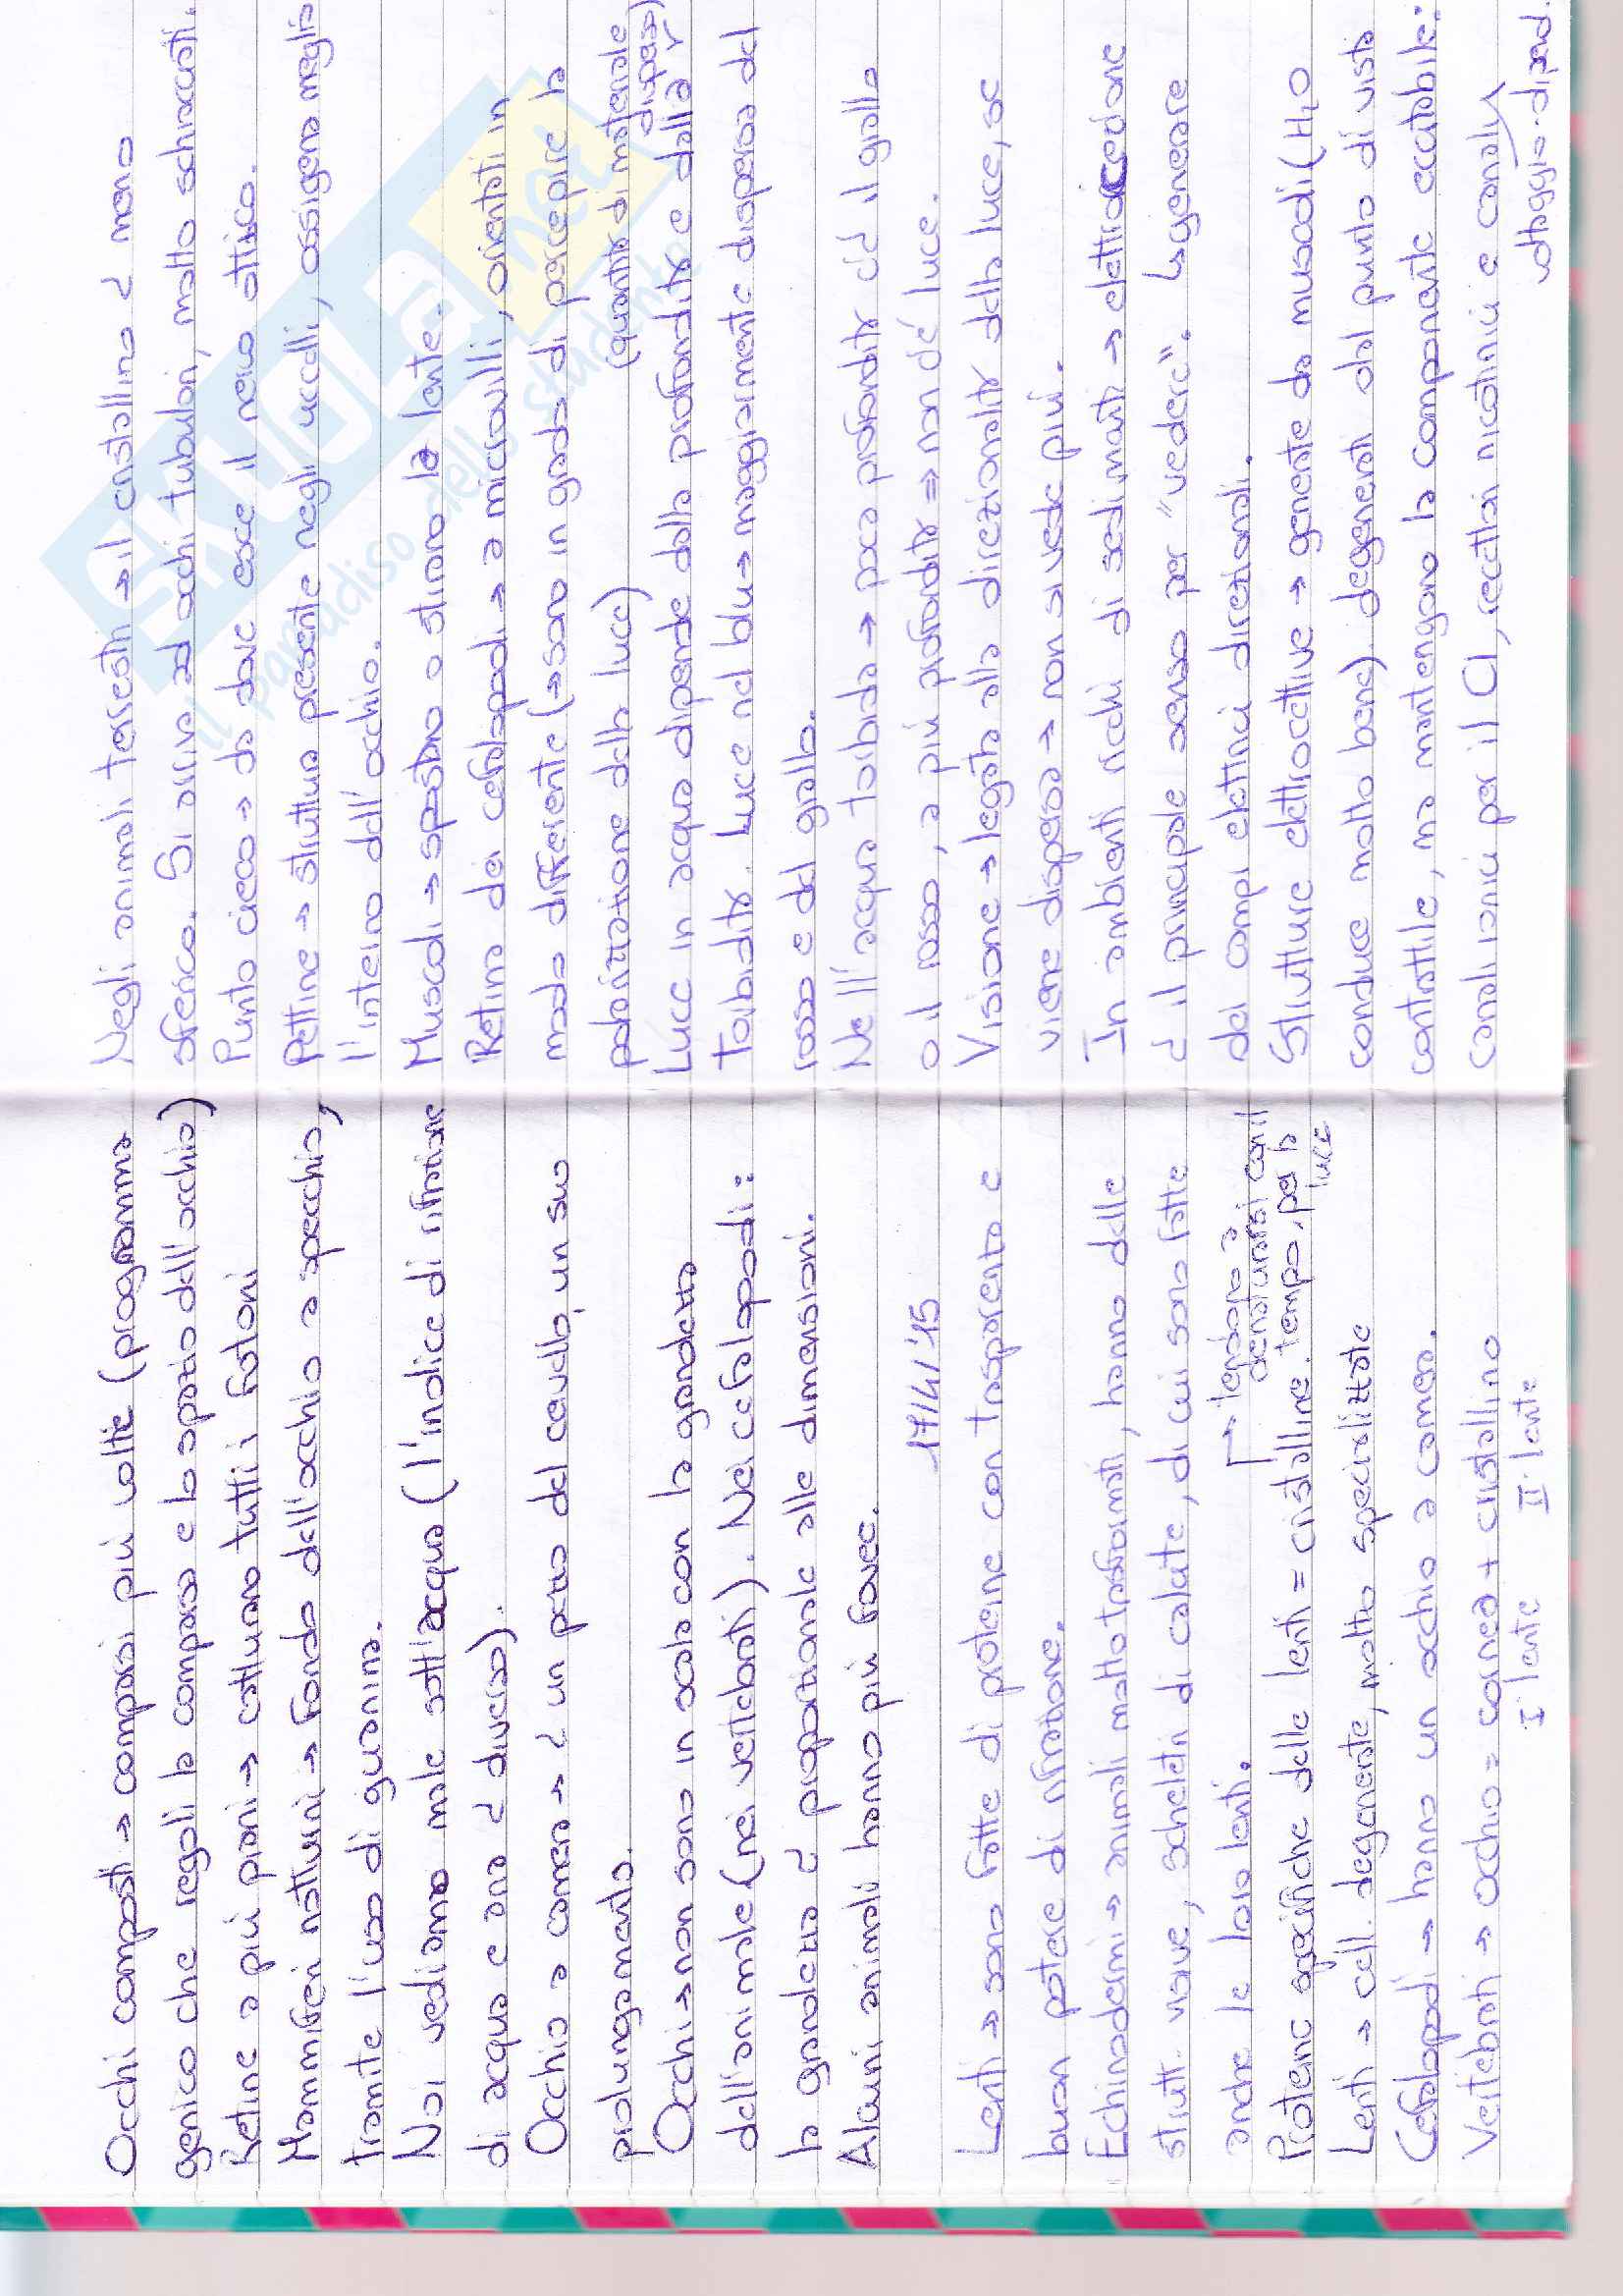 Occhi composti → comparsi più volte (programma
genico che regoli la comparsa e lo spazio dell'occhio)
Retine a più piani → catturano tutti i fotoni
Mammiferi notturni → fondo dell'occhio a specchio,
tramite l'uso di guanina.
Noi vediamo male sott'acqua (l'indice di rifrazione
di acqua e aria è diverso).
Occhio a camera → è un pezzo del cervello, un suo
prolungamento.
Occhi → non sono in scala con la grandezza
dell'animale (nei vertebrati). Nei cefalopodi:
la grandezza è proporzionale alle dimensioni.
Alcuni animali hanno più fovee.
17/4/'15
Lenti → sono fatte di proteine con trasparenta e
buon potere di rifrazione.
Echinodermi → animali molto trasformati, hanno delle
strutt. nuove, scheletri di calcite, di cui sono fatte
anche le loro lenti.
→ tendono a
denaturarsi con il
tempo, per la
luce
Proteine specifiche delle lenti = cristalline.
Lenti → cell. degenerate, molto specializzate
Cefalopodi → hanno un occhio a camera.
Vertebrati → occhio = cornea + cristallino
I lente II lente
Negli animali terrestri → il cristallino è meno
sferico. Si arriva ad occhi tubulari, molto schiacciati.
Punto cieco → da dove esce il nervo ottico.
Pettine → struttura presente negli uccelli, ossigena meglio
l'interno dell'occhio.
Muscoli → spostano o stirano la lente.
Retina dei cefalopodi → a microvilli, orientati in
modo differente (→ sono in grado di percepire la
polarizzazione della luce)
(quantità di materiale
disperso)
Luce in acqua dipende dalla profondità e dalla
torbidità. Luce nel blu → maggiormente dispersa del
rosso e del giallo.
Nell'acqua torbida → poca profondità c'è il giallo
o il rosso, a più profondità ⇒ non c'è luce.
Visione → legata alla direzionalità della luce, se
viene dispersa → non si vede più.
In ambienti ricchi di sedimenti → elettrocezione
è il principale senso per "vedere". ↳ generare
dei campi elettrici direzionali.
Strutture elettrocettive → generate da muscoli (H₂O
conduce molto bene) degenerati dal punto di vista
contrattile, ma mantengono la componente eccitabile:
canali ionici per il Cl, recettori nicotinici e canali
voltaggio-dipend.
SKUOLA.net
il paradiso dello studente